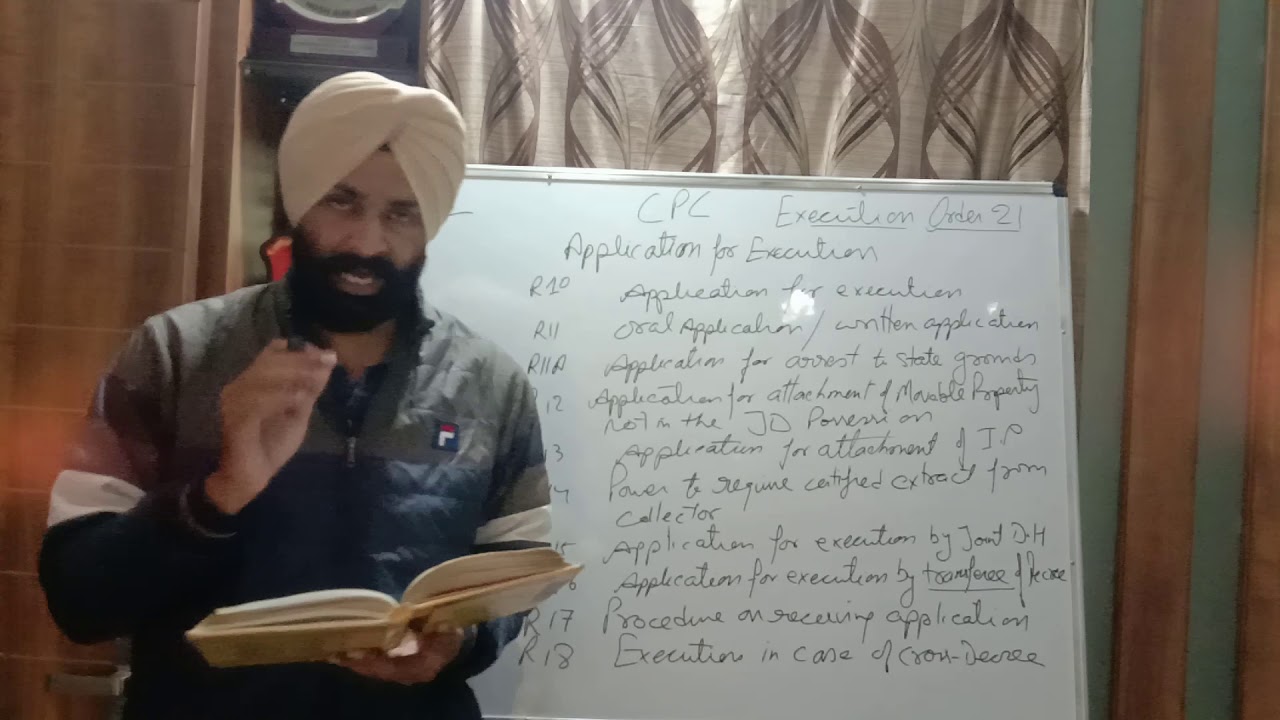 CPC Execution Order 21
Application for Execution
R10 Application for execution
R11 oral Application / written application
R11A Application for arrest to state grounds
12 Application for attachment of Movable Property
not in the JD Possession
3 Application for attachment of I.P
14 Power to require certified extract from
Collector
15 Application for execution by Joint D.H
6 Application for execution by transferee of Decree
R17 Procedure on receiving application
R18 Execution in case of Cross-Decree